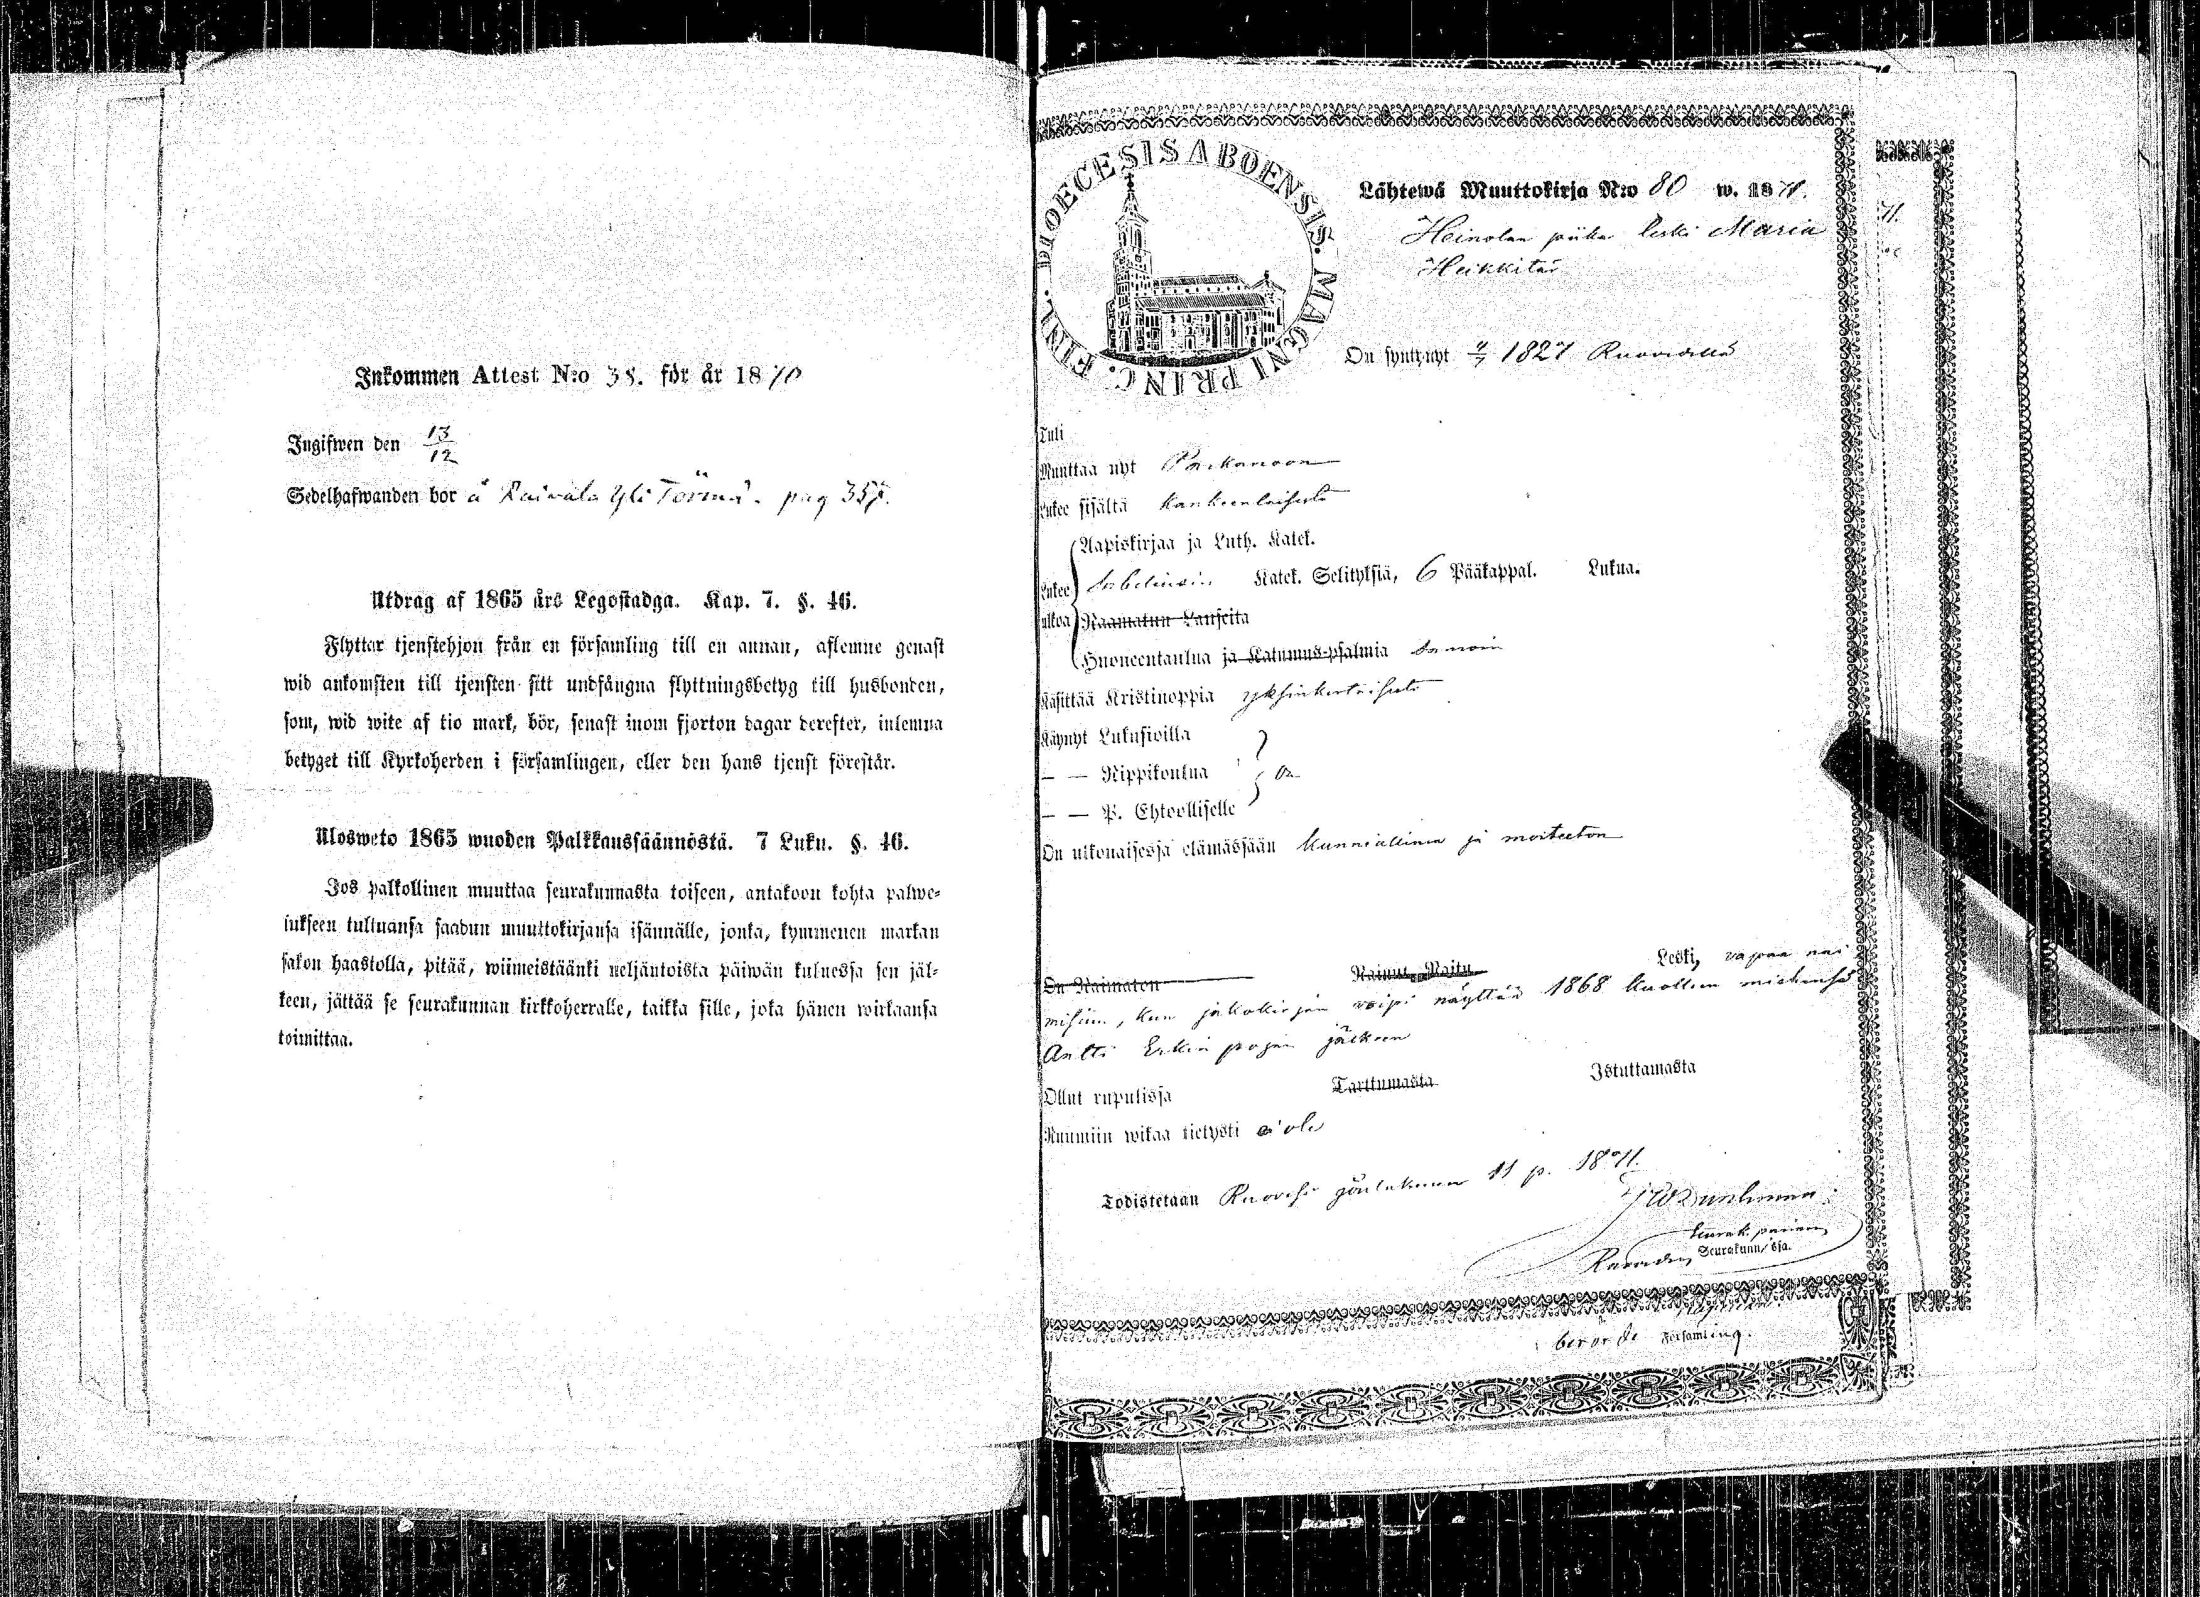 Inkommen Attest N:o 38. för år 1870
Ingifwen den 13/12
Sedelhafwanden bor å Raivala Yli Törmä. pag 357.
Utdrag af 1865 års Legostadga. Kap. 7. §. 46.
Flyttar tjenstehjon från en församling till en annan, aflemne genast
wid ankomsten till tjensten sitt undfångna flyttningsbetyg till husbonden,
som, wid wite af tio mark, bör, senast inom fjorton dagar derefter, inlemna
betyget till Kyrkoherden i församlingen, eller den hans tjenst förestår.
Ulosweto 1865 wuoden Palkkaussäännöstä. 7 Luku. §. 46.
Jos palkollinen muuttaa seurakunnasta toiseen, antakoon kohta palwe-
lukseen tultuansa saadun muuttokirjansa isännälle, jonka, kymmenen markan
sakon haastolla, pitää, wiimeistäänki neljäntoista päiwän kuluessa sen jäl-
keen, jättää se seurakunnan kirkkoherralle, taikka sille, joka hänen wirkaansa
toimittaa.
DIOECESIS ABOENSIS. MAGNI PRINC. FINL.
Lähtewä Muuttokirja N:o 80 w. 1871.
Heinolan piika leski Maria
Heikkitär
On syntynyt 1827 Ruovedellä
Tuli
Muuttaa nyt Parkanoon
Lukee sisältä kankeenlaisesti
Aapiskirjaa ja Luth. Katek.
Lukee Katek. Selityksiä, 6 Pääkappal. Lukua.
ulkoa Raamatun Lauseita
Huoneentaulua ja Katumus-psalmia samoin
Käsittää Kristinoppia yksinkertaisesti
Käynyt Lukusioilla
— — Rippikoulua on
— — P. Ehtoolliselle
On ulkonaisessa elämässään kunniallinen ja moiteeton
On Naimaton Leski, vapaa nai
misiin, kun jakokirjan voipi näyttää 1868 kuolleen miehensä
Antti Erkin pojan jälkeen
Ollut rupulissa Tarttumasta Istuttamasta
Ruumiin wikaa tietysti ei ole
Todistetaan Ruovesi joulukuun 11 p. 1871.
Seurakunnassa.
Församling.